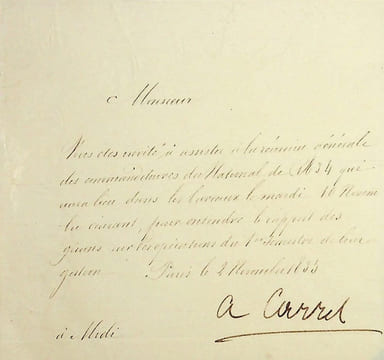 Monsieur
Vous êtes invité à assister à la réunion générale
des commanditaires du National de 1834 qui
aura lieu dans les bureaux le mardi 10 Novem
bre courant, pour entendre le rapport des
gérans sur les opérations du 1er semestre de leur
gestion. Paris le 2 Novembre 1835
A Carrel
à Midi